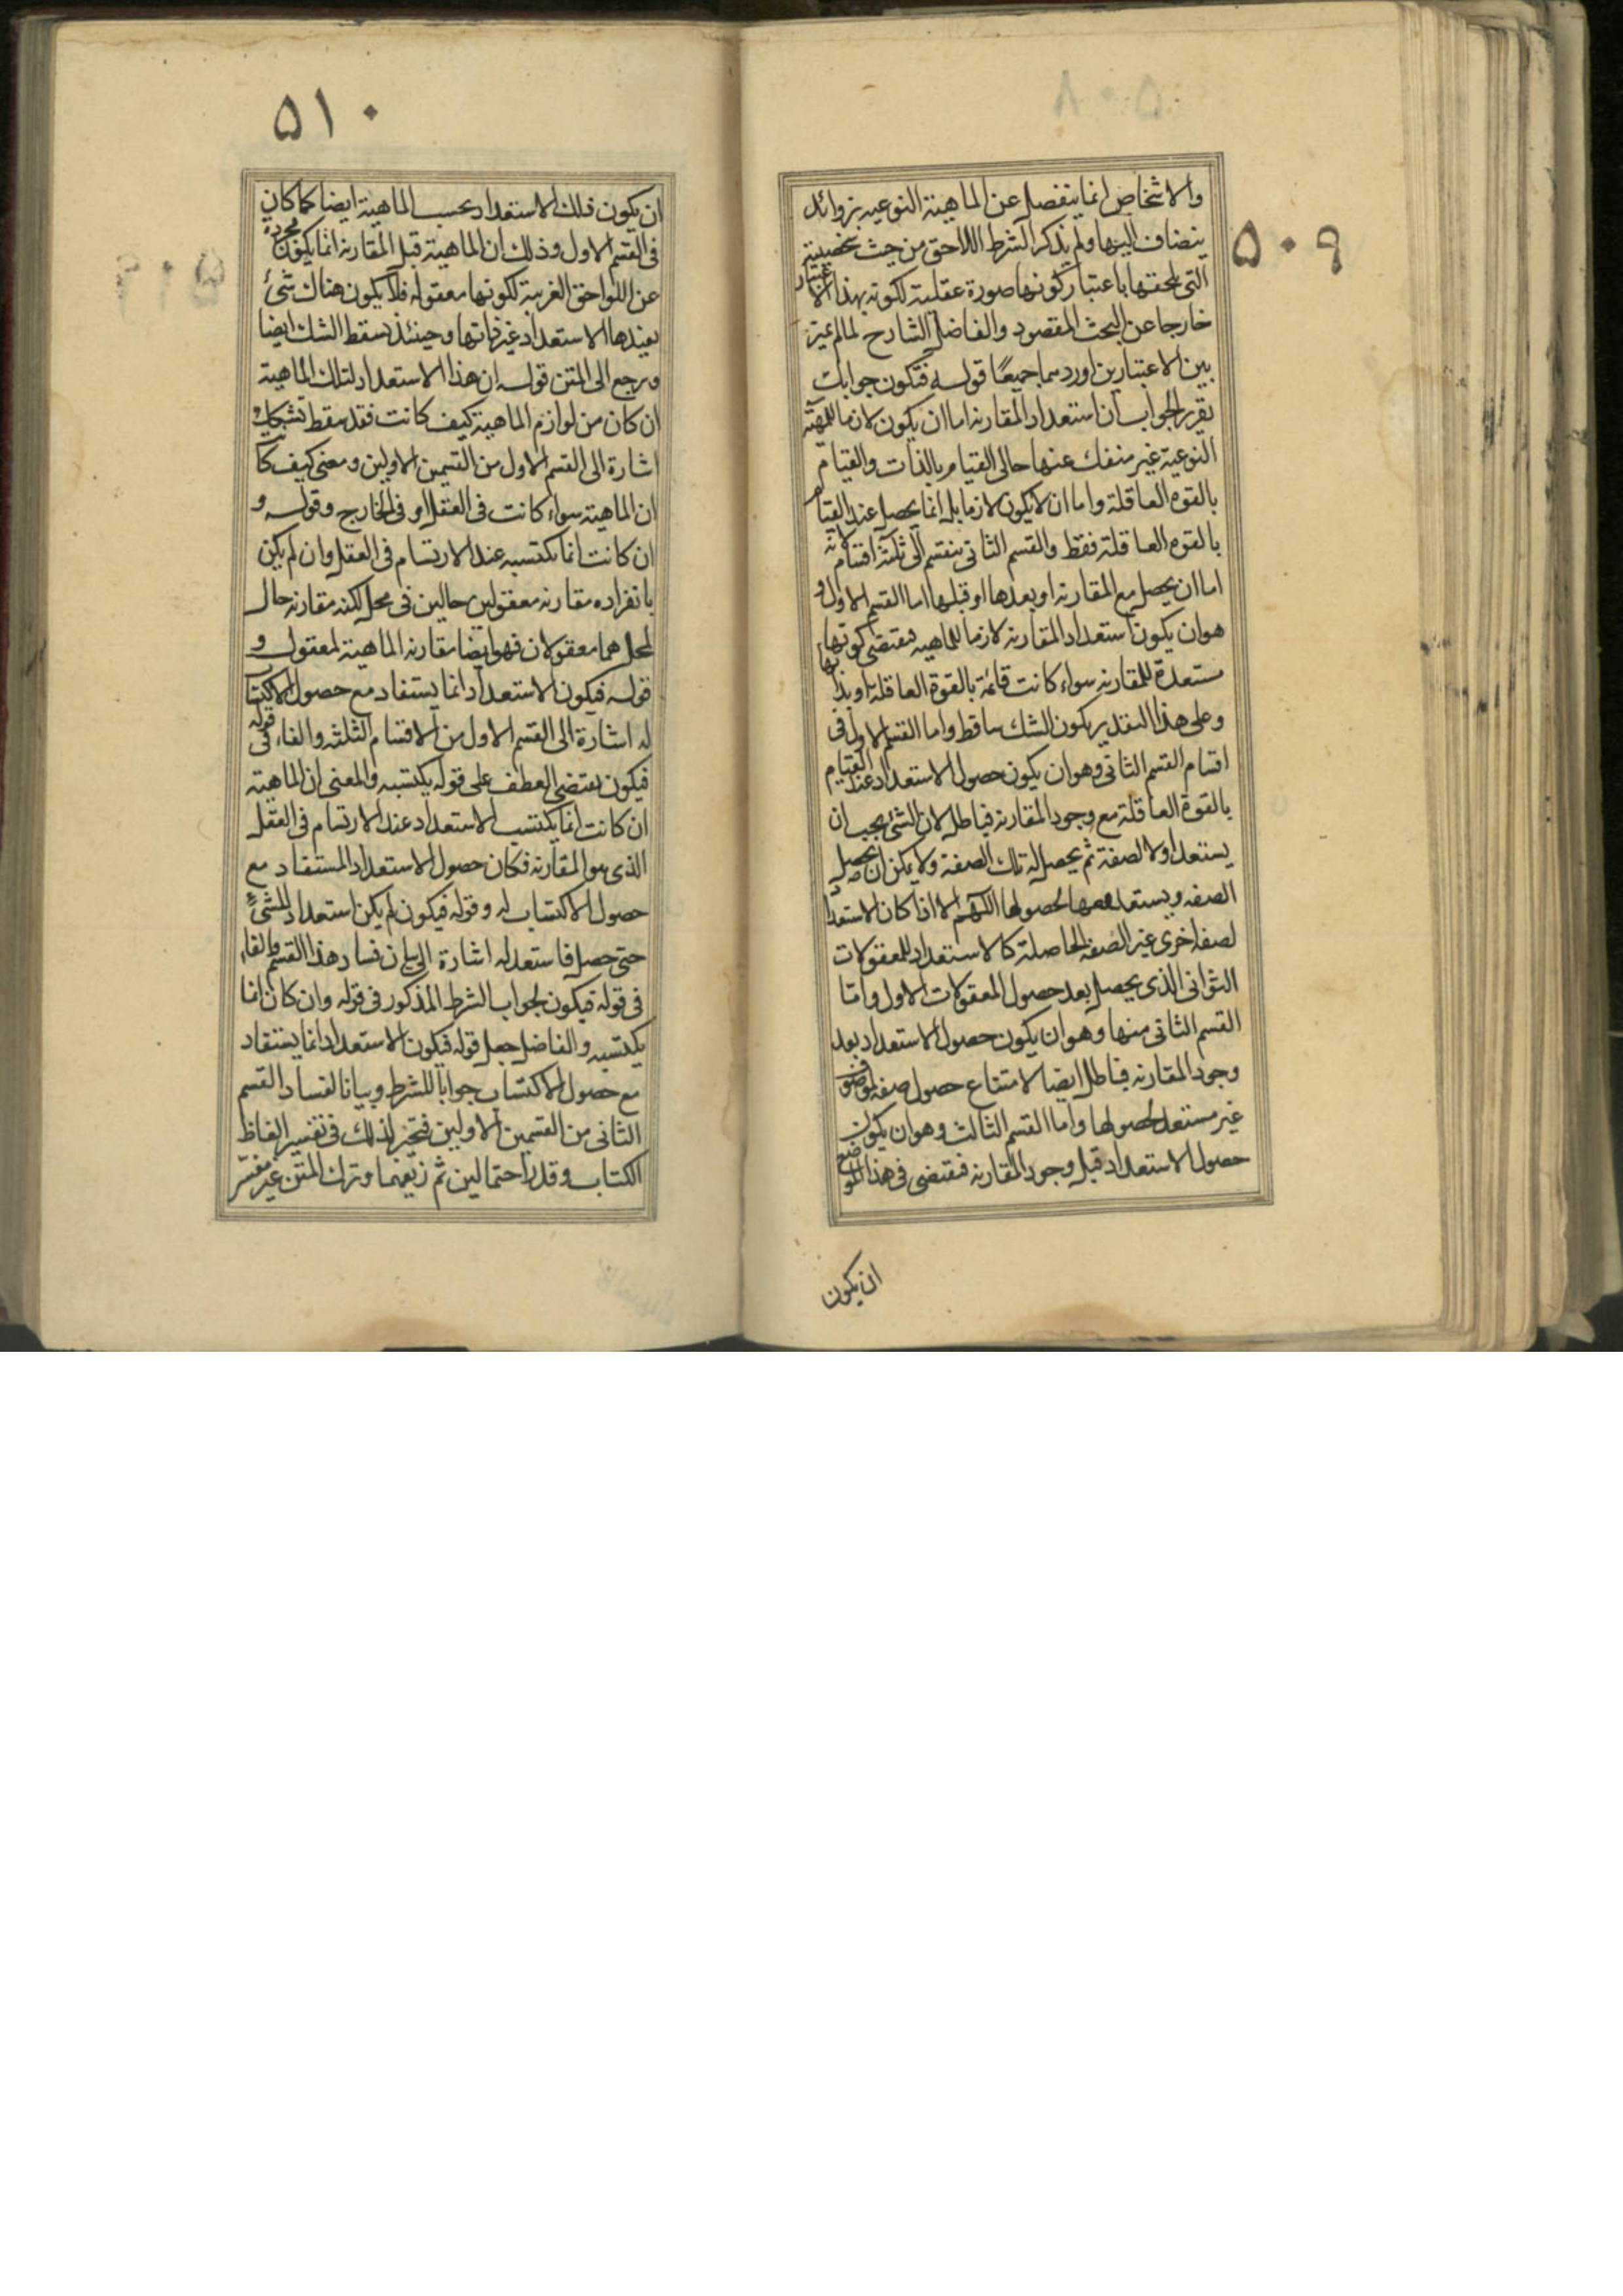 ٥٠٩
والاشخاص انما ينفصل عن الماهية النوعيه بزوائد
ينضاف اليها ولم يذكر الشرط اللاحق من حيث شخصيته
التى يلحقها باعتبار كونها صورة عقلية لكونه بهذا الاعتبار
خارجا عن البحث المقصود والفاضل الشارح لما لم يميز
بين الاعتبارين اوردهما جميعًا قوله فتكون جوابك
تقرير الجواب ان استعداد المقارنه اما ان يكون لازما للمهية
النوعية غير منفك عنها حالى القيام بالذات والقيام
بالقوه العاقلة واما ان لا يكون لازما بل انما يحصل عند القيام
بالقوه العاقلة فقط والقسم الثانى ينقسم الى ثلثة اقسام لانه
اما ان يحصل مع المقارنه او بعدها او قبلها اما القسم الاول و
هو ان يكون استعداد المقارنه لازما للماهيه فيقتضى كونها
مستعدة للمقارنه سواء كانت قائمة بالقوة العاقلة او بذاتها
وعلى هذا التقدير يكون الشك ساقطا واما القسم الاول فى
اقسام القسم الثانى وهو ان يكون حصول الاستعداد عند القيام
بالقوة العاقلة مع وجود المقارنه فباطل لان الشئ يجب ان
يستعد اولا لصفة ثم يحصل له تلك الصفة ولا يمكن ان يحصل
الصفه ويستعد معها لحصولها اللهم الا اذا كان الاستعداد
لصفه اخرى غير الصفه الحاصلة كالاستعداد للمعقولات
الثوانى الذى يحصل بعد حصول المعقولات الاول واما
القسم الثانى منها وهو ان يكون حصول الاستعداد بعد
وجود المقارنه فباطل ايضا لامتناع حصول صفه لموصوف
غير مستعد لحصولها واما القسم الثالث وهو ان يكون
حصول الاستعداد قبل وجود المقارنه فيقتضى فى هذا الموضع
ان يكون
٥١٠
ان يكون ذلك الاستعداد بحسب الماهية ايضا كما كان
فى القسم الاول وذلك ان الماهية قبل المقارنه انما يكون مجردة
عن اللواحق الغريبة لكونها معقوله فلا يكون هناك شئ
يفيدها الاستعداد غير ذاتها وحينئذ يسقط الشك ايضا
ويرجع الى المتن قوله ان هذا الاستعداد لتلك الماهية
ان كان من لوازم الماهية كيف كانت فقد سقط تشكيك
اشارة الى القسم الاول من القسمين الاولين ومعنى كيف كا
ان الماهية سواء كانت فى العقل او فى الخارج وقوله و
ان كانت انما تكتسبه عند الارتسام فى العقل وان لم يكن
بانفراده مقارنه معقولين حالين فى محل لكنه مقارنه حال
لمحل هما معقولان فهو ايضا مقارنه الماهية لمعقول و
قوله فيكون الاستعداد انما يستفاد مع حصول الاكتسا
له اشارة الى القسم الاول من الاقسام الثلثه والفاء فى قوله
فيكون يقتضى العطف على قوله يكتسبه والمعنى ان الماهية
ان كانت انما يكتسب الاستعداد عند الارتسام فى العقل
الذى هو المقارنه فكان حصول الاستعداد المستفاد مع
حصول الاكتساب له وقوله فيكون لم يكن استعداد للشئ
حتى حصل فاستعد له اشارة الى بيان فساد هذا القسم والفاء
فى قوله فيكون لجواب الشرط المذكور فى قوله وان كان انما
يكتسبه والفاضل جعل قوله فيكون الاستعداد انما يستفاد
مع حصول الاكتساب جوابا للشرط وبيانا لفساد القسم
الثانى من القسمين الاولين فتحير لذلك فى تفسير الفاظ
الكتاب وقدر احتمالين ثم زيفهما وترك المتن غير مفسّر